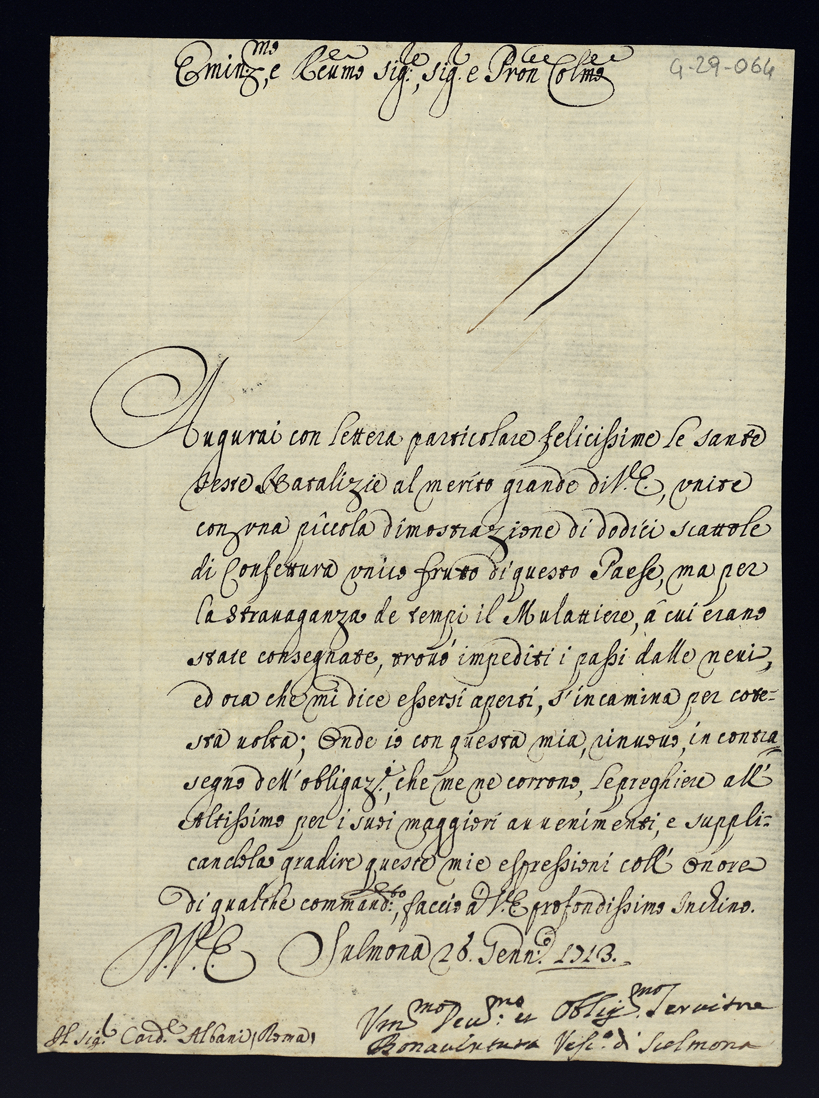 Eminmo, e Reumo sigre, sig. e Pron Colmo
G-29-064
Augurai con lettera particolare felicissime le sante
feste Natalizie al merito grande di V.E., vnite
con vna piccola dimostrazione di dodici scattole
di Confettura vnico frutto di questo Paese, ma per
la strauaganza de tempi il Mulattiere, à cui erano
state consegnate, trouò impediti i passi dalle neui,
ed ora che mi dice essersi aperti, s'incamina per cote=
sta uolta; Onde io con questa mia, rinuouo, in contra
segno dell'obligaz.e, che me ne corrono, le preghiere all'
Altissimo per i suoi maggiori auuenimenti, e suppli=
candola gradire queste mie espressioni coll'onore
di qualche commandto, faccio à V.E. profondissimo Inchino.
V.E. Sulmona 28. Genno. 1713.
Vmmo Deumo et Obligmo Seruitore
Il sigr Carde Albani (Roma)
Bonauentura Vesco di Sulmona